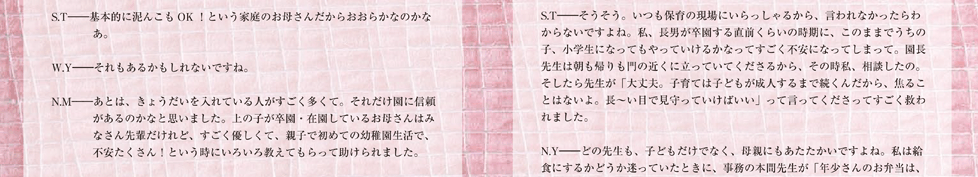 S.T──基本的に泥んこも OK ！という家庭のお母さんだからおおらかなのかな
あ。
W.Y──それもあるかもしれないですね。
N.M──あとは、きょうだいを入れている人がすごく多くて。それだけ園に信頼
があるのかなと思いました。上の子が卒園・在園しているお母さんはみ
なさん先輩だけれど、すごく優しくて、親子で初めての幼稚園生活で、
不安たくさん！という時にいろいろ教えてもらって助けられました。
S.T──そうそう。いつも保育の現場にいらっしゃるから、言われなかったらわ
からないですよね。私、長男が卒園する直前くらいの時期に、このままでうちの
子、小学生になってもやっていけるかなってすごく不安になってしまって。園長
先生は朝も帰りも門の近くに立っていてくださるから、その時私、相談したの。
そしたら先生が「大丈夫。子育ては子どもが成人するまで続くんだから、焦るこ
とはないよ。長〜い目で見守っていけばいい」って言ってくださってすごく救わ
れました。
N.Y──どの先生も、子どもだけでなく、母親にもあたたかいですよね。私は給
食にするかどうか迷っていたときに、事務の本間先生が「年少さんのお弁当は、